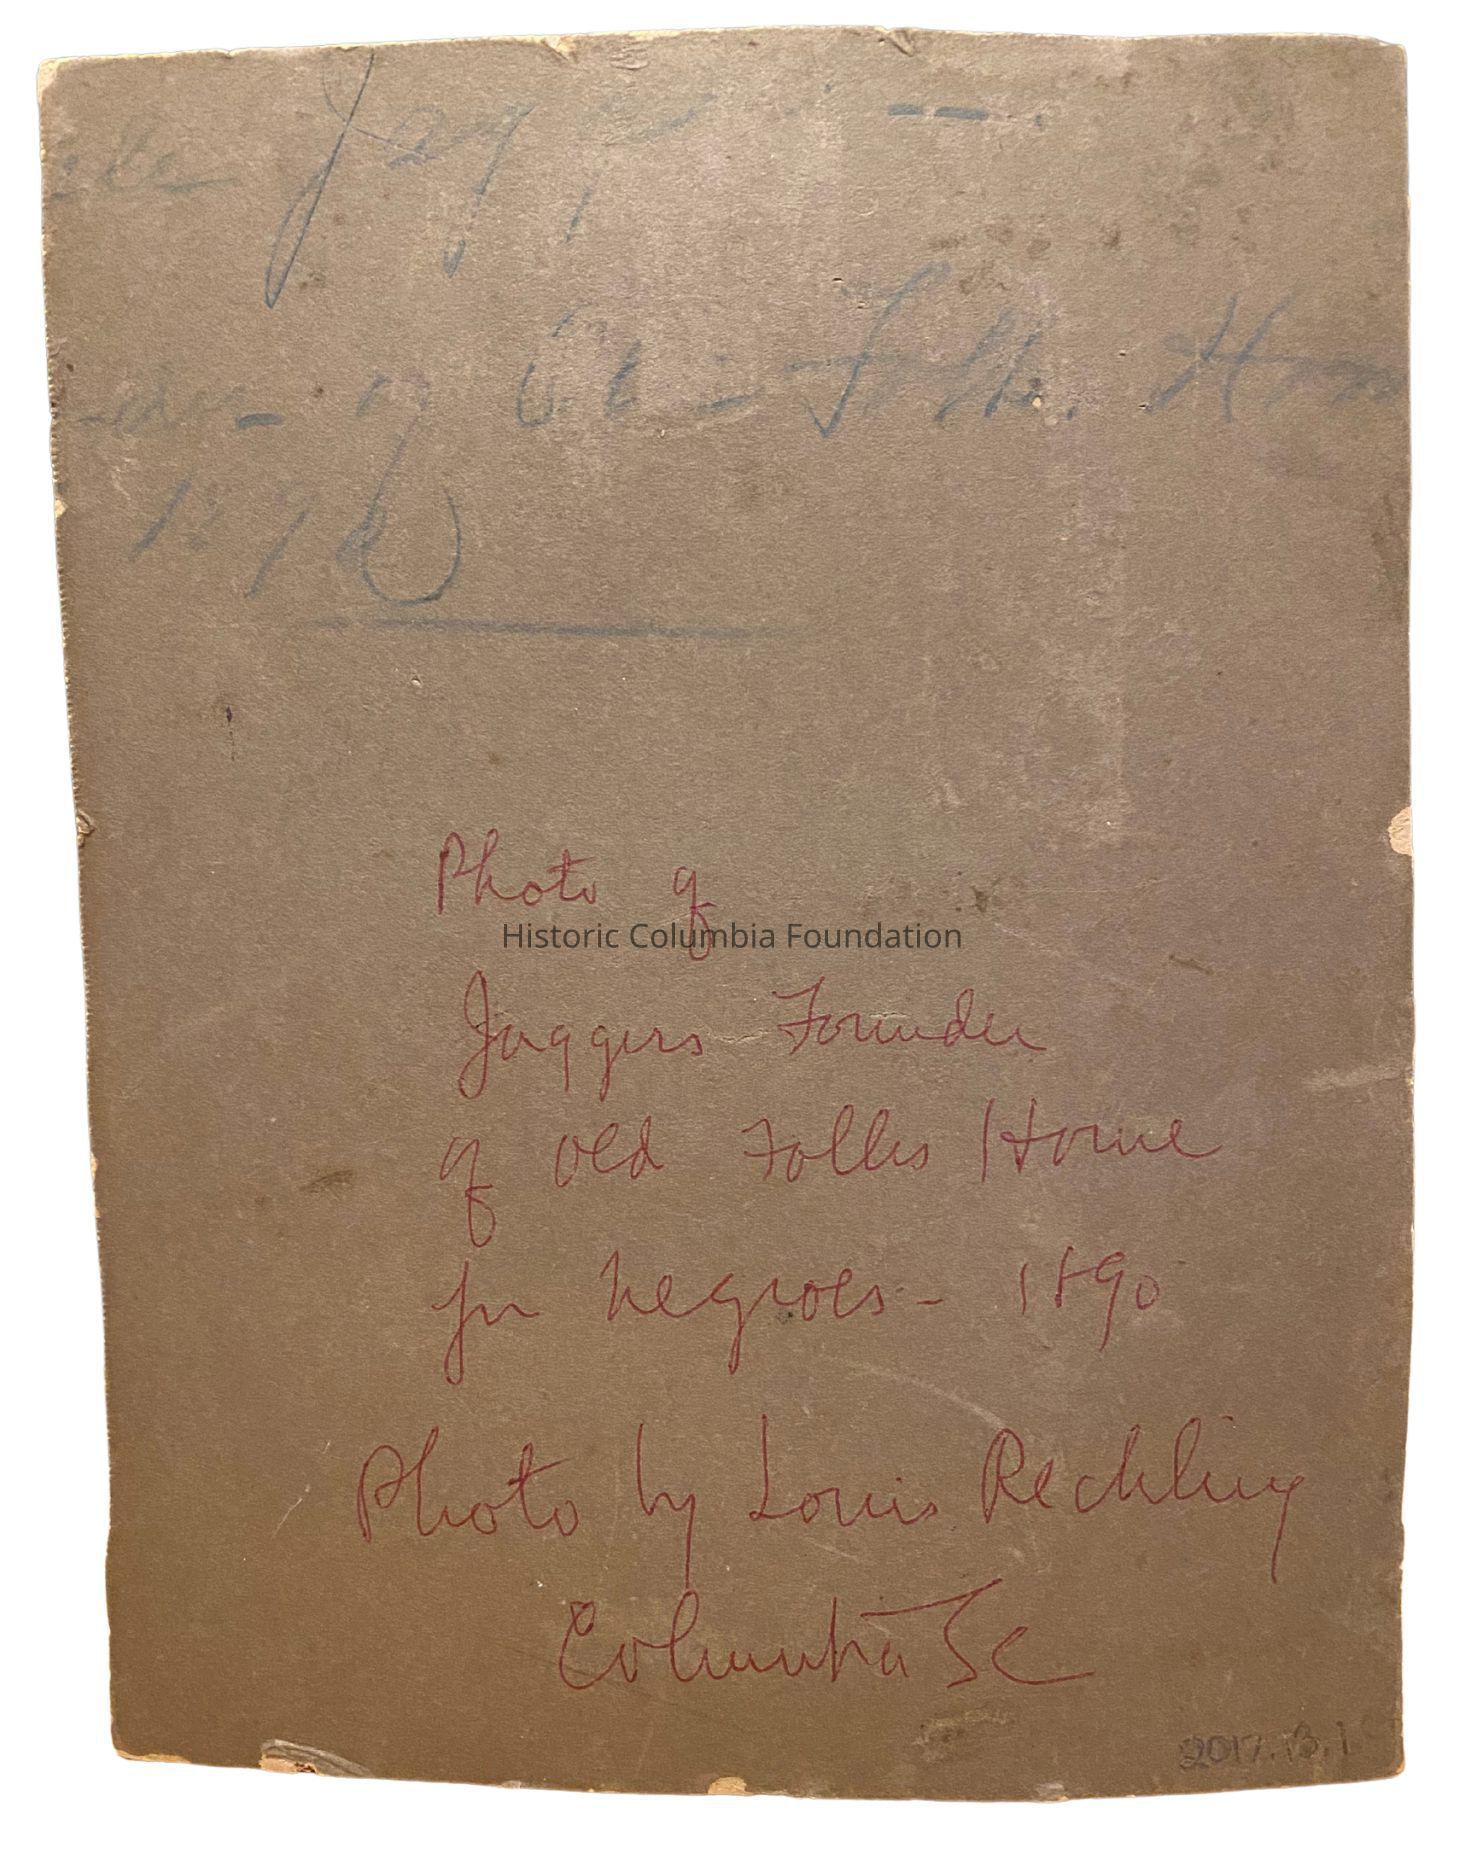 Jag
of Old Folks Hom
189
Photo of
Historic Columbia Foundation
Jaggers Founder
of Old Folks Home
for negroes - 1890
Photo by Louis Reckling
Columbia SC
2017.13.1